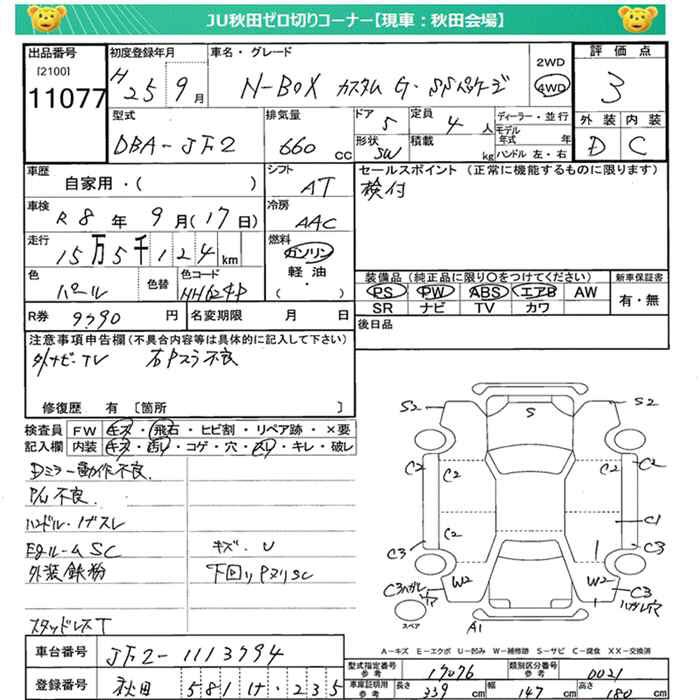 JU秋田ゼロ切りコーナー【現車：秋田会場】
出品番号 [2100] 11077
初度登録年月 H25 9月
車名・グレード N-BOX カスタム G・SSパッケージ
2WD 4WD
評価点 3
外装 D 内装 C
型式 DBA-JF2
排気量 660 cc
ドア 5 定員 4人
形状 SW 積載 kg
ディーラー・並行
モデル年式 年
ハンドル 左・右
車歴 自家用・( )
シフト AT
セールスポイント (正常に機能するものに限ります)
検付
車検 R8年9月(17日)
冷房 AAC
走行 15万5千124km
燃料 ガソリン 軽油 ( ・ )
色 パール 色替 色コード NH624P
装備品 (純正品に限り〇をつけてください)
PS PW ABS エアB AW
SR ナビ TV カワ
新車保証書 有・無
R券 9790円 名変期限 月 日
後日品
注意事項申告欄 (不具合内容等は具体的に記入して下さい)
外ナビ・TV 右Pスラ不良
修復歴 有 〔箇所 〕
検査員記入欄
FW キズ・飛石・ヒビ割・リペア跡・×要
内装 キズ・汚れ・コゲ・穴・スレ・キレ・破レ
Dミラー動作不良
P/W不良
ハンドル・ハゲスレ
Egルーム SC
キズ・U
外装鉄粉
下回りPヌリSC
スタッドレスT
S2 S S2
C2 C2 C2
C2 C1
C3 C3
W2 W2
C3ハガレ
C3
ハガレ穴
スペア A1
A-キズ E-エクボ U-凹み W-補修跡 S-サビ C-腐食 XX-交換済
車台番号 JF2-1113794
登録番号 秋田 581 け 235
型式指定番号 参考 17076 類別区分番号 参考 0021
車庫証明用 参考 長さ 339 cm 幅 147 cm 高さ 180 cm